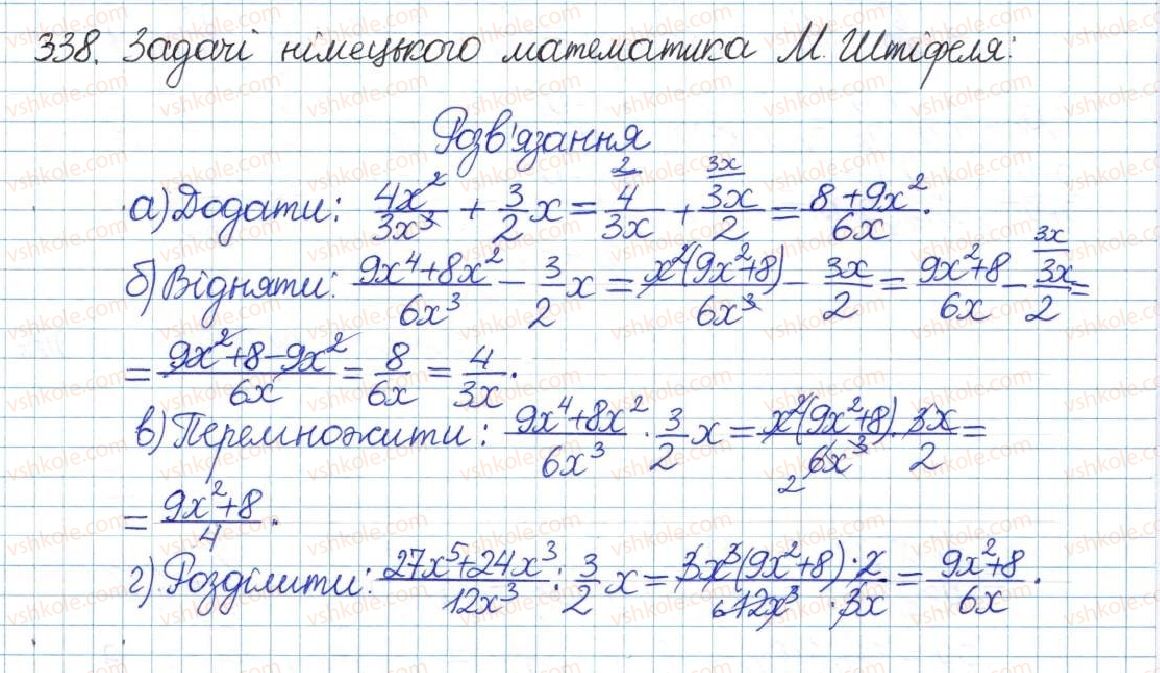 338. Задачі німецького математика М. Штіфеля:
Розв'язання
а) Додати: 4x²/3x³ + 3/2 x = 4/3x (2 + 3x/2 (3x = (8 + 9x²)/6x.
б) Відняти: (9x⁴+8x²)/6x³ − 3/2 x = x²(9x²+8)/6x³ − 3x/2 = (9x²+8)/6x − 3x/2 (3x =
= (9x²+8−9x²)/6x = 8/6x = 4/3x.
в) Перемножити: (9x⁴+8x²)/6x³ · 3/2 x = x²(9x²+8)/6x³ · 3x/2 =
2
= (9x²+8)/4.
г) Розділити: (27x⁵+24x³)/12x³ : 3/2 x = 3x³(9x²+8)·2/12x³·3x = (9x²+8)/6x.